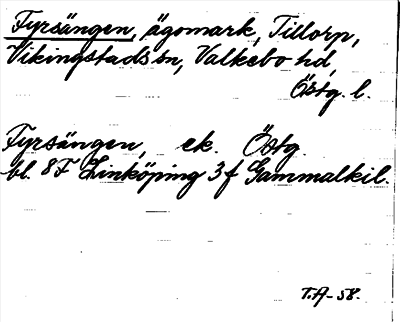 Fyrsängen, ägomark, Tillorp,
Vikingstads sn, Valkebo hd,
Östg. l.
Fyrsängen, ek. Östg.
bl. 8F Linköping 3f Gammalkil.
T.A-58.